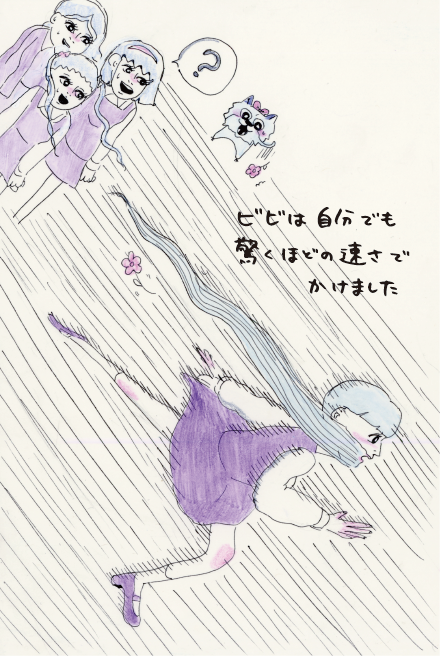 ?
ビビは自分でも
驚くほどの速さで
かけました